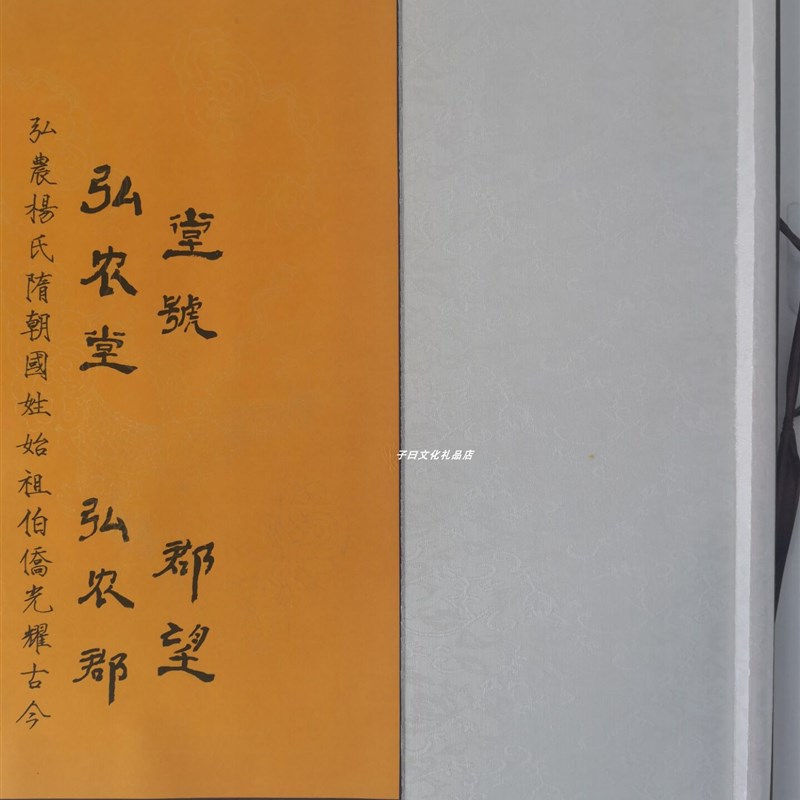 堂號
郡望
弘农堂
弘农郡
弘農楊氏隋朝國姓始祖伯僑光耀古今
子曰文化礼品店